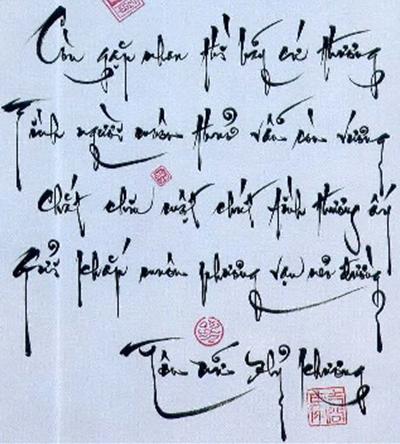 Còn gặp nhau thì hãy cứ thương
Tình người muôn thuở vẫn còn vương
Chắt chiu một chút tình thương ấy
Gửi khắp muôn phương vạn nẻo đường
Tôn Nữ Hỷ Khương